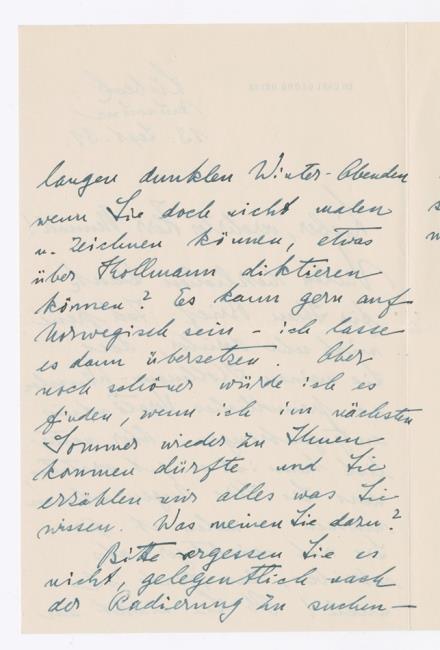 langen dunklen Winter-Abenden
wenn Sie doch nicht malen
u. zeichnen können, etwas
über Kollmann diktieren
können? Es kann gern auf
Norwegisch sein – ich lasse
es dann übersetzen. Aber
noch schöner würde ich es
finden, wenn ich im nächsten
Sommer wieder zu Ihnen
kommen dürfte und Sie
erzählen mir alles was Sie
wissen. Was meinen Sie dazu?
Bitte vergessen Sie es
nicht, gelegentlich nach
der Radierung zu suchen –